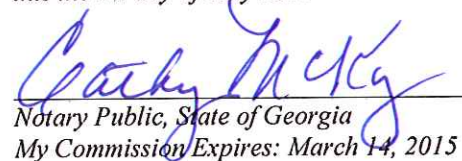 Cathy McKay
Notary Public, State of Georgia
My Commission Expires: March 14, 2015